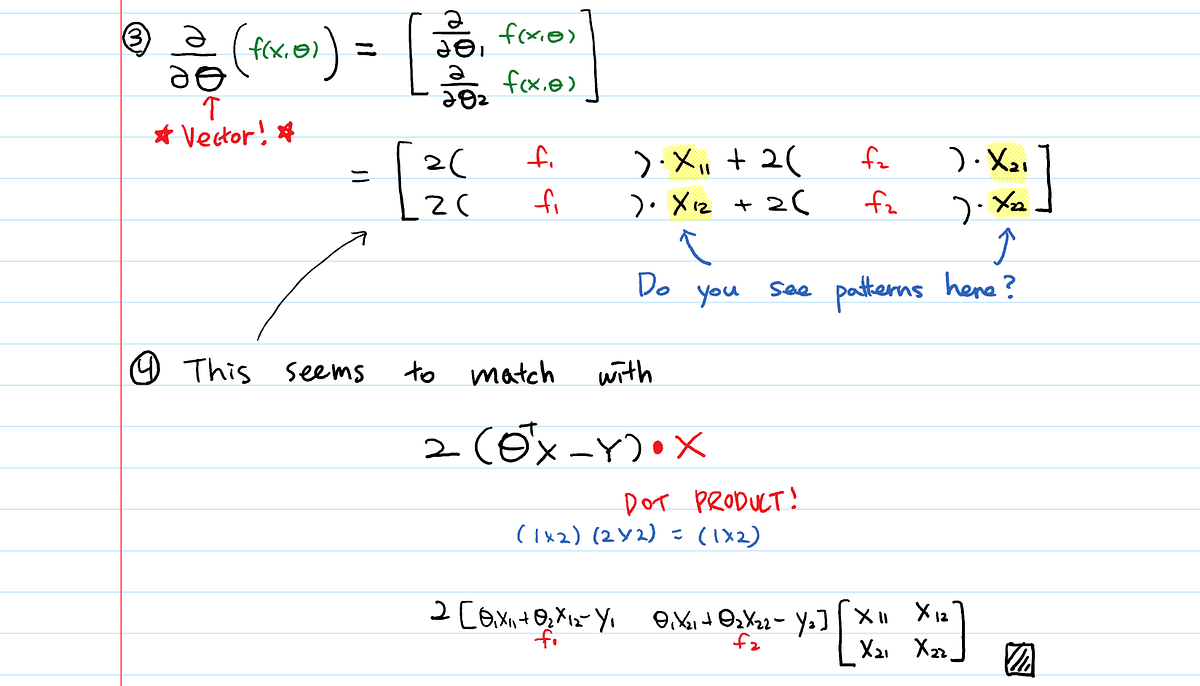 ③ ∂/∂θ (f(x,θ)) = [ ∂/∂θ₁ f(x,θ)
∂/∂θ₂ f(x,θ) ]
↑
* Vector! *
= [ 2( f₁ )·X₁₁ + 2( f₂ )·X₂₁
2( f₁ )·X₁₂ + 2( f₂ )·X₂₂ ]
Do you see patterns here?
④ This seems to match with
2 (θᵀX – Y) • X
DOT PRODUCT!
(1x2) (2x2) = (1x2)
2 [θ₁X₁₁+θ₂X₁₂–Y₁ θ₁X₂₁+θ₂X₂₂–Y₂] [ X₁₁ X₁₂
f₁ f₂ X₂₁ X₂₂ ]